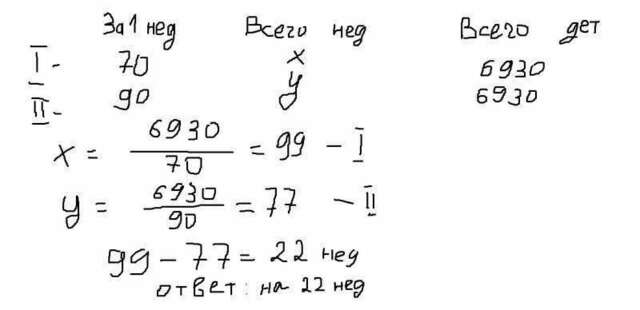 За 1 нед Всего нед Всего дет
I - 70 x 6930
II - 90 y 6930
x = 6930/70 = 99 - I
y = 6930/90 = 77 - II
99 - 77 = 22 нед
ответ: на 22 нед